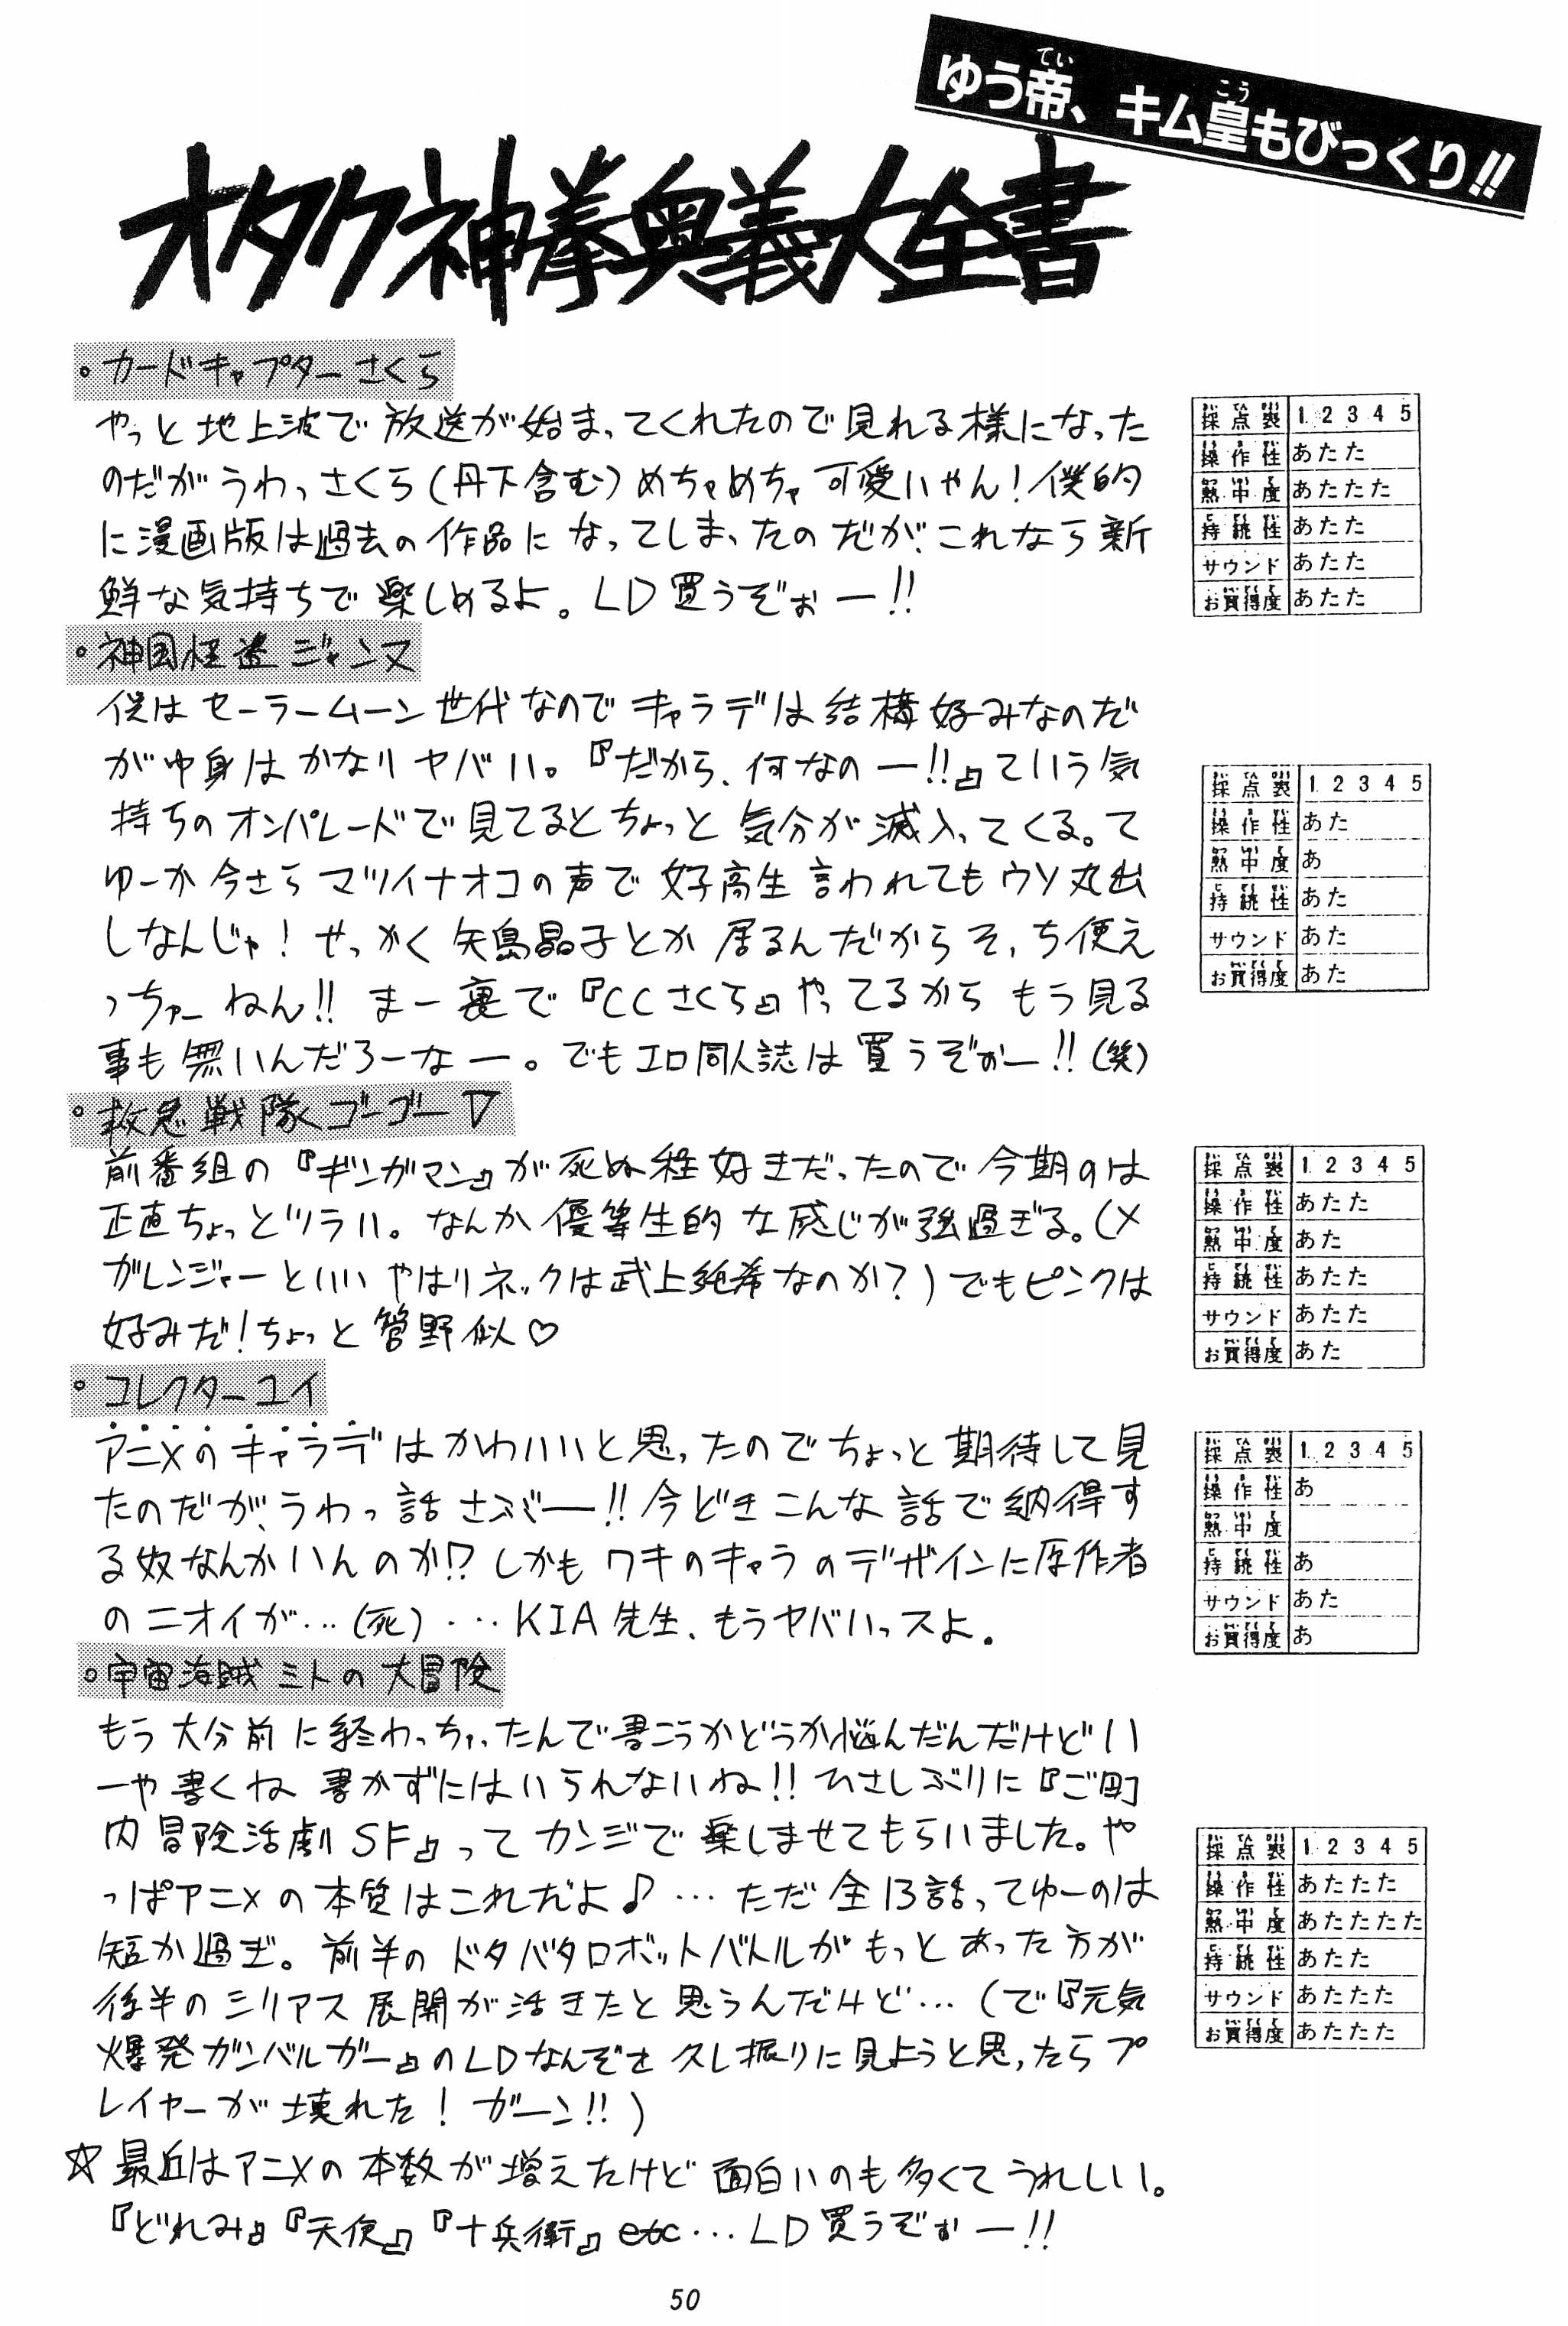 ゆう帝、キム皇もびっくり!!
てい
こう
オタク神拳奥義大全書
。カードキャプターさくら
やっと地上波で放送が始まってくれたので見れる様になった
のだがうわっさくら(丹下含む)めちゃめちゃ可愛いやん!僕的
に漫画版は過去の作品になってしまったのだが、これなら新
鮮な気持ちで楽しめるよ。LD買うぞぉー!!
採点表 1 2 3 4 5
操作性 あたた
熱中度 あたたた
持続性 あたた
サウンド あたた
お買得度 あたた
。神国怪盗ジャンヌ
僕はセーラームーン世代なのでキャラデは結構好みなのだ
が中身はかなりヤバい。『だから、何なのー!!』ていう気
持ちのオンパレードで見てるとちょっと気分が滅入ってくる。て
ゆーか今さらマツイナオコの声で女子高生言われてもウソ丸出
しなんじゃ!せっかく矢島晶子とか居るんだからそっち使え
っちゅーねん!!まー裏で『CCさくら』やってるからもう見る
事も無いんだろーなー。でもエロ同人誌は買うぞぉー!!(笑)
採点表 1 2 3 4 5
操作性 あた
熱中度 あ
持続性 あた
サウンド あた
お買得度 あた
。救急戦隊ゴーゴーV
前番組の『ギンガマン』が死ぬ程好きだったので今期のは
正直ちょっとツラい。なんか優等生的な感じが強過ぎる。(メ
ガレンジャーといいやはりネックは武上純希なのか?)でもピンクは
好みだ!ちょっと管野似♡
採点表 1 2 3 4 5
操作性 あたた
熱中度 あた
持続性 あたた
サウンド あたた
お買得度 あた
。コレクターユイ
アニメのキャラデはかわいいと思ったのでちょっと期待して見
たのだが、うわっ話さぶー!!今どきこんな話で納得す
る奴なんかいんのか!?しかもワキのキャラのデザインに原作者
のニオイが…(死)…KIA先生、もうヤバいっスよ。
採点表 1 2 3 4 5
操作性 あ
熱中度
持続性 あ
サウンド あた
お買得度 あ
。宇宙海賊ミトの大冒険
もう大分前に終わっちゃったんで書こうかどうか悩んだんだけどい
ーや書くね書かずにはいられないね!!ひさしぶりに『ご町
内冒険活劇SF』ってカンジで楽しませてもらいました。や
っぱアニメの本質はこれだよ♪…ただ全13話ってゆーのは
短か過ぎ。前半のドタバタロボットバトルがもっとあった方が
後半のシリアス展開が活きたと思うんだけど…(で『元気
爆発ガンバルガー』のLDなんぞを久し振りに見ようと思ったらプ
レイヤーが壊れた!ガーン!!)
採点表 1 2 3 4 5
操作性 あたたた
熱中度 あたたたた
持続性 あたた
サウンド あたたた
お買得度 あたたた
☆最近はアニメの本数が増えたけど面白いのも多くてうれしい。
『どれみ』『天使』『十兵衛』etc…LD買うぞぉー!!
50